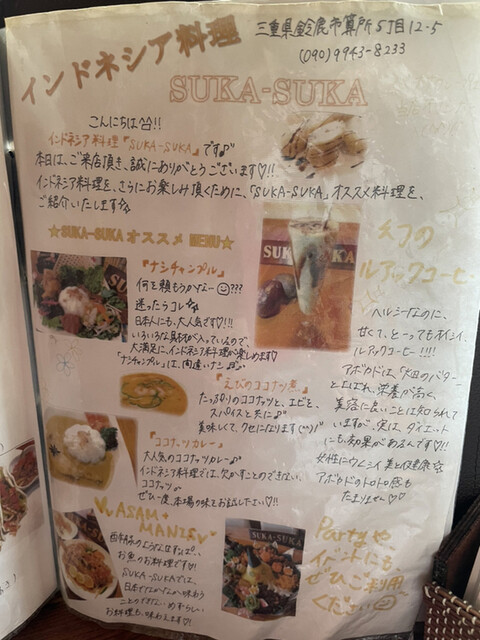 インドネシア料理
三重県鈴鹿市算所5丁目12-5
(090)9943-8233
SUKA-SUKA
こんにちは!!
インドネシア料理『SUKA-SUKA』です♪
本日は、ご来店頂き、誠にありがとうございます♡!!
インドネシア料理を、さらにお楽しみ頂くために、「SUKA-SUKA」オススメ料理を、
ご紹介いたします☆
☆SUKA-SUKA オススメ MENU☆
『ナシチャンプル』
何を頼もうかなー???
迷ったらコレ☆
日本人にも、大人気です♡!!!
いろいろな具材が入っているので、
大満足に、インドネシア料理が楽しめます!
「ナシチャンプル」は、間違いナシ♪
『えびのココナツ煮』
たっぷりのココナツと、エビを、
スパイスと共に♪
美味しくて、クセになります(^^)/
『ココナツカレー』
大人気のココナツカレー♪
インドネシア料理では、欠かすことのできない、
ココナツ
ぜひ一度、本場の味をお試しください!!
ASAM+
MANIS
お魚のお料理です♡!
SUKA-SUKAでは、
日本ではなかなか味わう
ことのできない、めずらしい
お料理も、味わえます♡!
SUKA-SUKA
幻の
ルアックコーヒー
ヘルシーなのに、
甘くて、とーってもオイシイ、
ルアックコーヒー!!!!
アボカドは、「畑のバター」
と言われ、栄養が高く、
美容に良いことは知られて
いますが、実は、ダイエット
にも、効果があるんです♡!!
女性にウレシイ美と健康
アボカドのトロトロ感も
たまりません♡♡
SUKA-SUKA
Partyや
イベントにも
ぜひご利用
ください